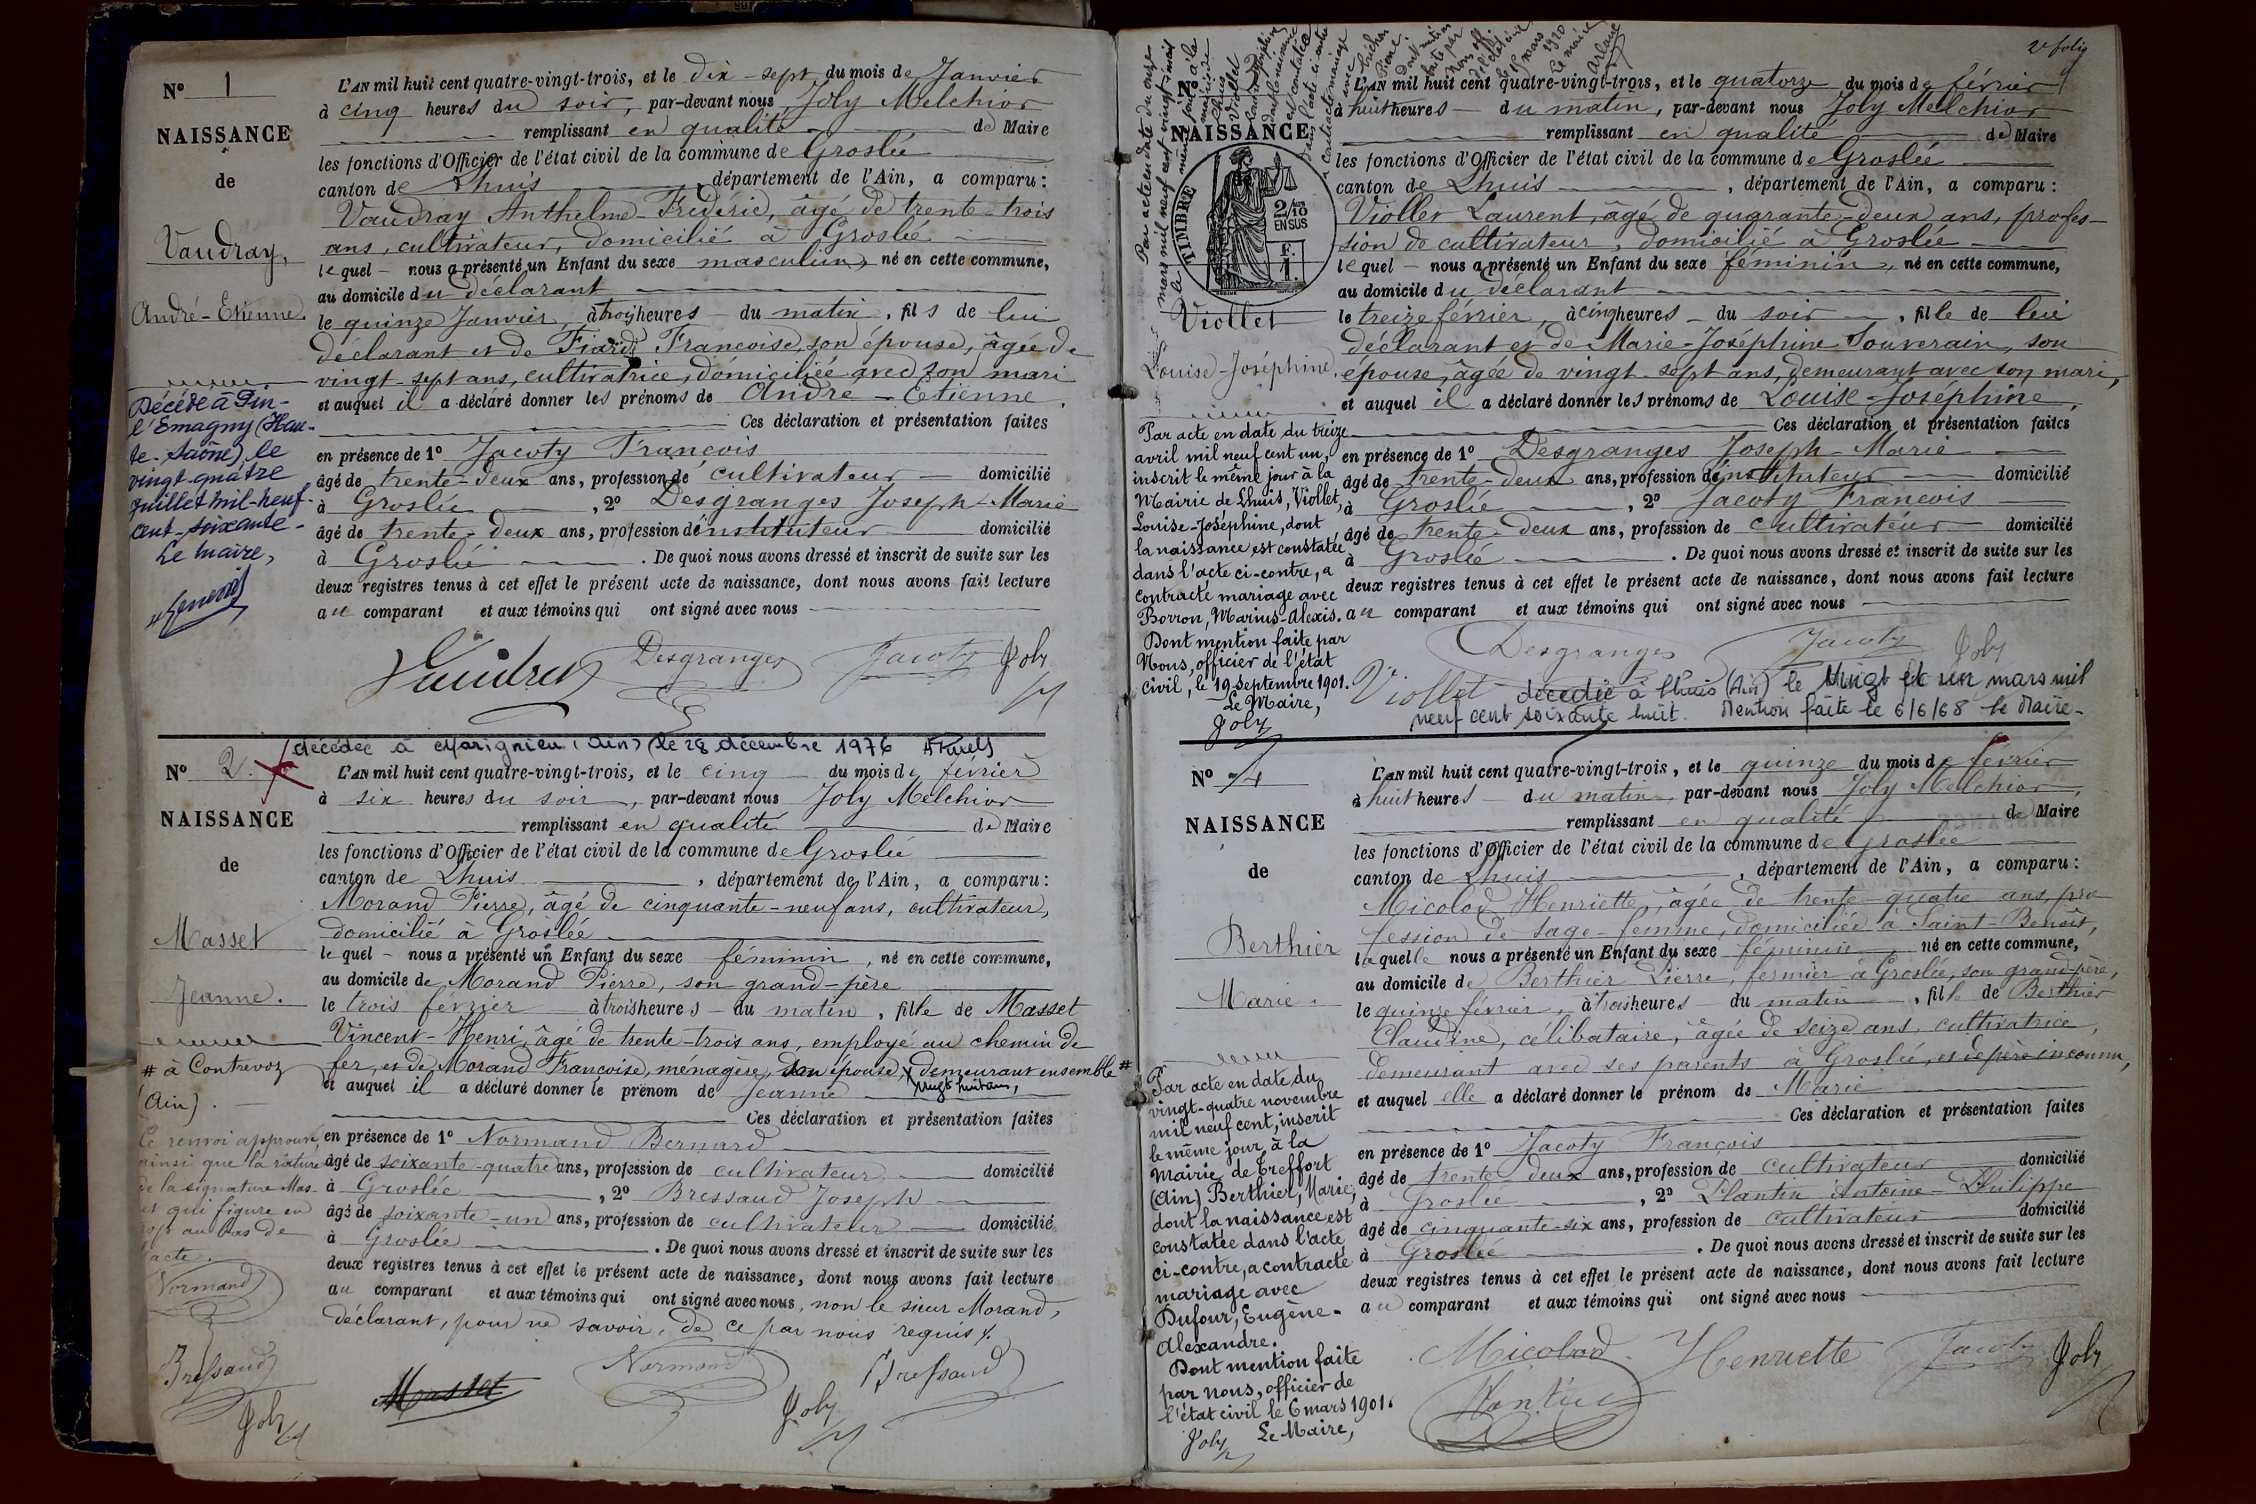 N° 1
NAISSANCE
de
Vaudray,
André-Etienne.
Décédé à Pin-
l'Emagny (Hau-
te-Saône) le
vingt-quatre
juillet mil-neuf-
cent-soixante-
Le maire,
L'AN mil huit cent quatre-vingt-trois, et le dix-sept du mois de Janvier
à cinq heures du soir, par-devant nous Joly Melchior
remplissant en qualité de Maire
les fonctions d'Officier de l'état civil de la commune de Groslée
canton de Lhuis, département de l'Ain, a comparu:
Vaudray Anthelme-Frédéric, âgé de trente-trois
ans, cultivateur, domicilié à Groslée
lequel nous a présenté un Enfant du sexe masculin, né en cette commune,
au domicile du déclarant
le quinze Janvier, à trois heures du matin, fils de lui
déclarant et de Françoise, son épouse, âgée de
vingt-sept ans, cultivatrice, domiciliée avec son mari
et auquel il a déclaré donner les prénoms de André-Etienne.
Ces déclaration et présentation faites
en présence de 1° Jacoty François
âgé de trente-deux ans, profession de cultivateur domicilié
à Groslée, 2° Desgranges Joseph-Marie
âgé de trente-deux ans, profession d'instituteur domicilié
à Groslée. De quoi nous avons dressé et inscrit de suite sur les
deux registres tenus à cet effet le présent acte de naissance, dont nous avons fait lecture
au comparant et aux témoins qui ont signé avec nous
Vaudray Desgranges Jacoty Joly
décédée à Marignieu (Ain) le 28 décembre 1976
N° 2.
NAISSANCE
de
Masset
Jeanne.
# à Contrevoz
(Ain).
Ce renvoi approuvé,
ainsi que la rature
de la signature Mas-
et qui figure en
au bas de
l'acte.
Normand
Bressaud
Joly
L'AN mil huit cent quatre-vingt-trois, et le cinq du mois de février
à six heures du soir, par-devant nous Joly Melchior
remplissant en qualité de Maire
les fonctions d'Officier de l'état civil de la commune de Groslée
canton de Lhuis, département de l'Ain, a comparu:
Morand Pierre, âgé de cinquante-neuf ans, cultivateur,
domicilié à Groslée
lequel nous a présenté un Enfant du sexe féminin, né en cette commune,
au domicile de Morand Pierre, son grand-père
le trois février à trois heures du matin, fille de Masset
Vincent-Henri, âgé de trente-trois ans, employé au chemin de
fer, et de Morand Françoise, ménagère, son épouse, demeurant ensemble #
vingt huit ans,
et auquel il a déclaré donner le prénom de Jeanne
Ces déclaration et présentation faites
en présence de 1° Normand Bernard
âgé de soixante-quatre ans, profession de cultivateur domicilié
à Groslée, 2° Bressaud Joseph
âgé de soixante-un ans, profession de cultivateur domicilié
à Groslée. De quoi nous avons dressé et inscrit de suite sur les
deux registres tenus à cet effet le présent acte de naissance, dont nous avons fait lecture
au comparant et aux témoins qui ont signé avec nous, non le sieur Morand,
déclarant, pour ne savoir, de ce par nous requis.
Masset Normand Joly Bressaud
2e folio
Par acte en date du onze
mars mil neuf cent vingt, inscrit
NAISSANCE
TIMBRE
2/10
EN SUS
F.
1.
Viollet
Louise-Joséphine.
Par acte en date du treize
avril mil neuf cent un,
inscrit le même jour à la
Mairie de Lhuis, Viollet,
Louise-Joséphine, dont
la naissance est constatée
dans l'acte ci-contre, a
contracté mariage avec
Borron, Marius-Alexis.
Dont mention faite par
Nous, officier de l'état
civil, le 19 septembre 1901.
Le Maire,
Joly
L'AN mil huit cent quatre-vingt-trois, et le quatorze du mois de février
à huit heures du matin, par-devant nous Joly Melchior
remplissant en qualité de Maire
les fonctions d'Officier de l'état civil de la commune de Groslée
canton de Lhuis, département de l'Ain, a comparu:
Viollet Laurent, âgé de quarante-deux ans, profes-
sion de cultivateur, domicilié à Groslée
lequel nous a présenté un Enfant du sexe féminin, né en cette commune,
au domicile du déclarant
le treize février, à cinq heures du soir, fille de lui
déclarant et de Marie-Joséphine Souverain, son
épouse, âgée de vingt-sept ans, demeurant avec son mari,
et auquel il a déclaré donner les prénoms de Louise-Joséphine,
Ces déclaration et présentation faites
en présence de 1° Desgranges Joseph-Marie
âgé de trente-deux ans, profession d'instituteur domicilié
à Groslée, 2° Jacoty François
âgé de trente-deux ans, profession de cultivateur domicilié
à Groslée. De quoi nous avons dressé et inscrit de suite sur les
deux registres tenus à cet effet le présent acte de naissance, dont nous avons fait lecture
au comparant et aux témoins qui ont signé avec nous
Desgranges Jacoty Joly
Viollet décédée à Lhuis (Ain) le vingt et un mars mil
neuf cent soixante huit. Mention faite le 6/6/68 le Maire-
N° 4
NAISSANCE
de
Berthier
Marie.
Par acte en date du
vingt-quatre novembre
mil neuf cent, inscrit
le même jour à la
Mairie de Treffort
(Ain) Berthier, Marie,
dont la naissance est
constatée dans l'acte
ci-contre, a contracté
mariage avec
Dufour, Eugène-
Alexandre.
Dont mention faite
par nous, officier de
l'état civil le 6 mars 1901.
Joly Le Maire,
L'AN mil huit cent quatre-vingt-trois, et le quinze du mois de février
à huit heures du matin, par-devant nous Joly Melchior,
remplissant en qualité de Maire
les fonctions d'Officier de l'état civil de la commune de Groslée
canton de Lhuis, département de l'Ain, a comparu:
Micolod Henriette, âgée de trente-quatre ans, pro-
fession de sage-femme, domiciliée à Saint-Benoît,
laquelle nous a présenté un Enfant du sexe féminin, né en cette commune,
au domicile de Berthier Pierre, fermier à Groslée, son grand-père,
le quinze février, à trois heures du matin, fille de Berthier
Claudine, célibataire, âgée de seize ans, cultivatrice,
demeurant avec ses parents à Groslée, et de père inconnu,
et auquel elle a déclaré donner le prénom de Marie
Ces déclaration et présentation faites
en présence de 1° Jacoty François
âgé de trente-deux ans, profession de cultivateur domicilié
à Groslée, 2° Plantin Antoine-Philippe
âgé de cinquante-six ans, profession de cultivateur domicilié
à Groslée. De quoi nous avons dressé et inscrit de suite sur les
deux registres tenus à cet effet le présent acte de naissance, dont nous avons fait lecture
au comparant et aux témoins qui ont signé avec nous
Micolod Henriette Jacoty Joly
Plantin